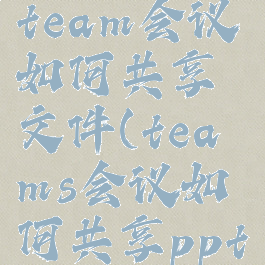 team会议
如何共享
文件(tea
ms会议如
何共享ppt